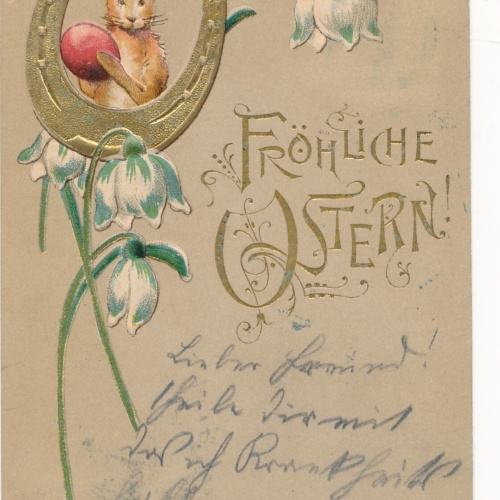 FRÖHLICHE
OSTERN!
Lieber Freund!
theile dir mit
das ich Krankheits